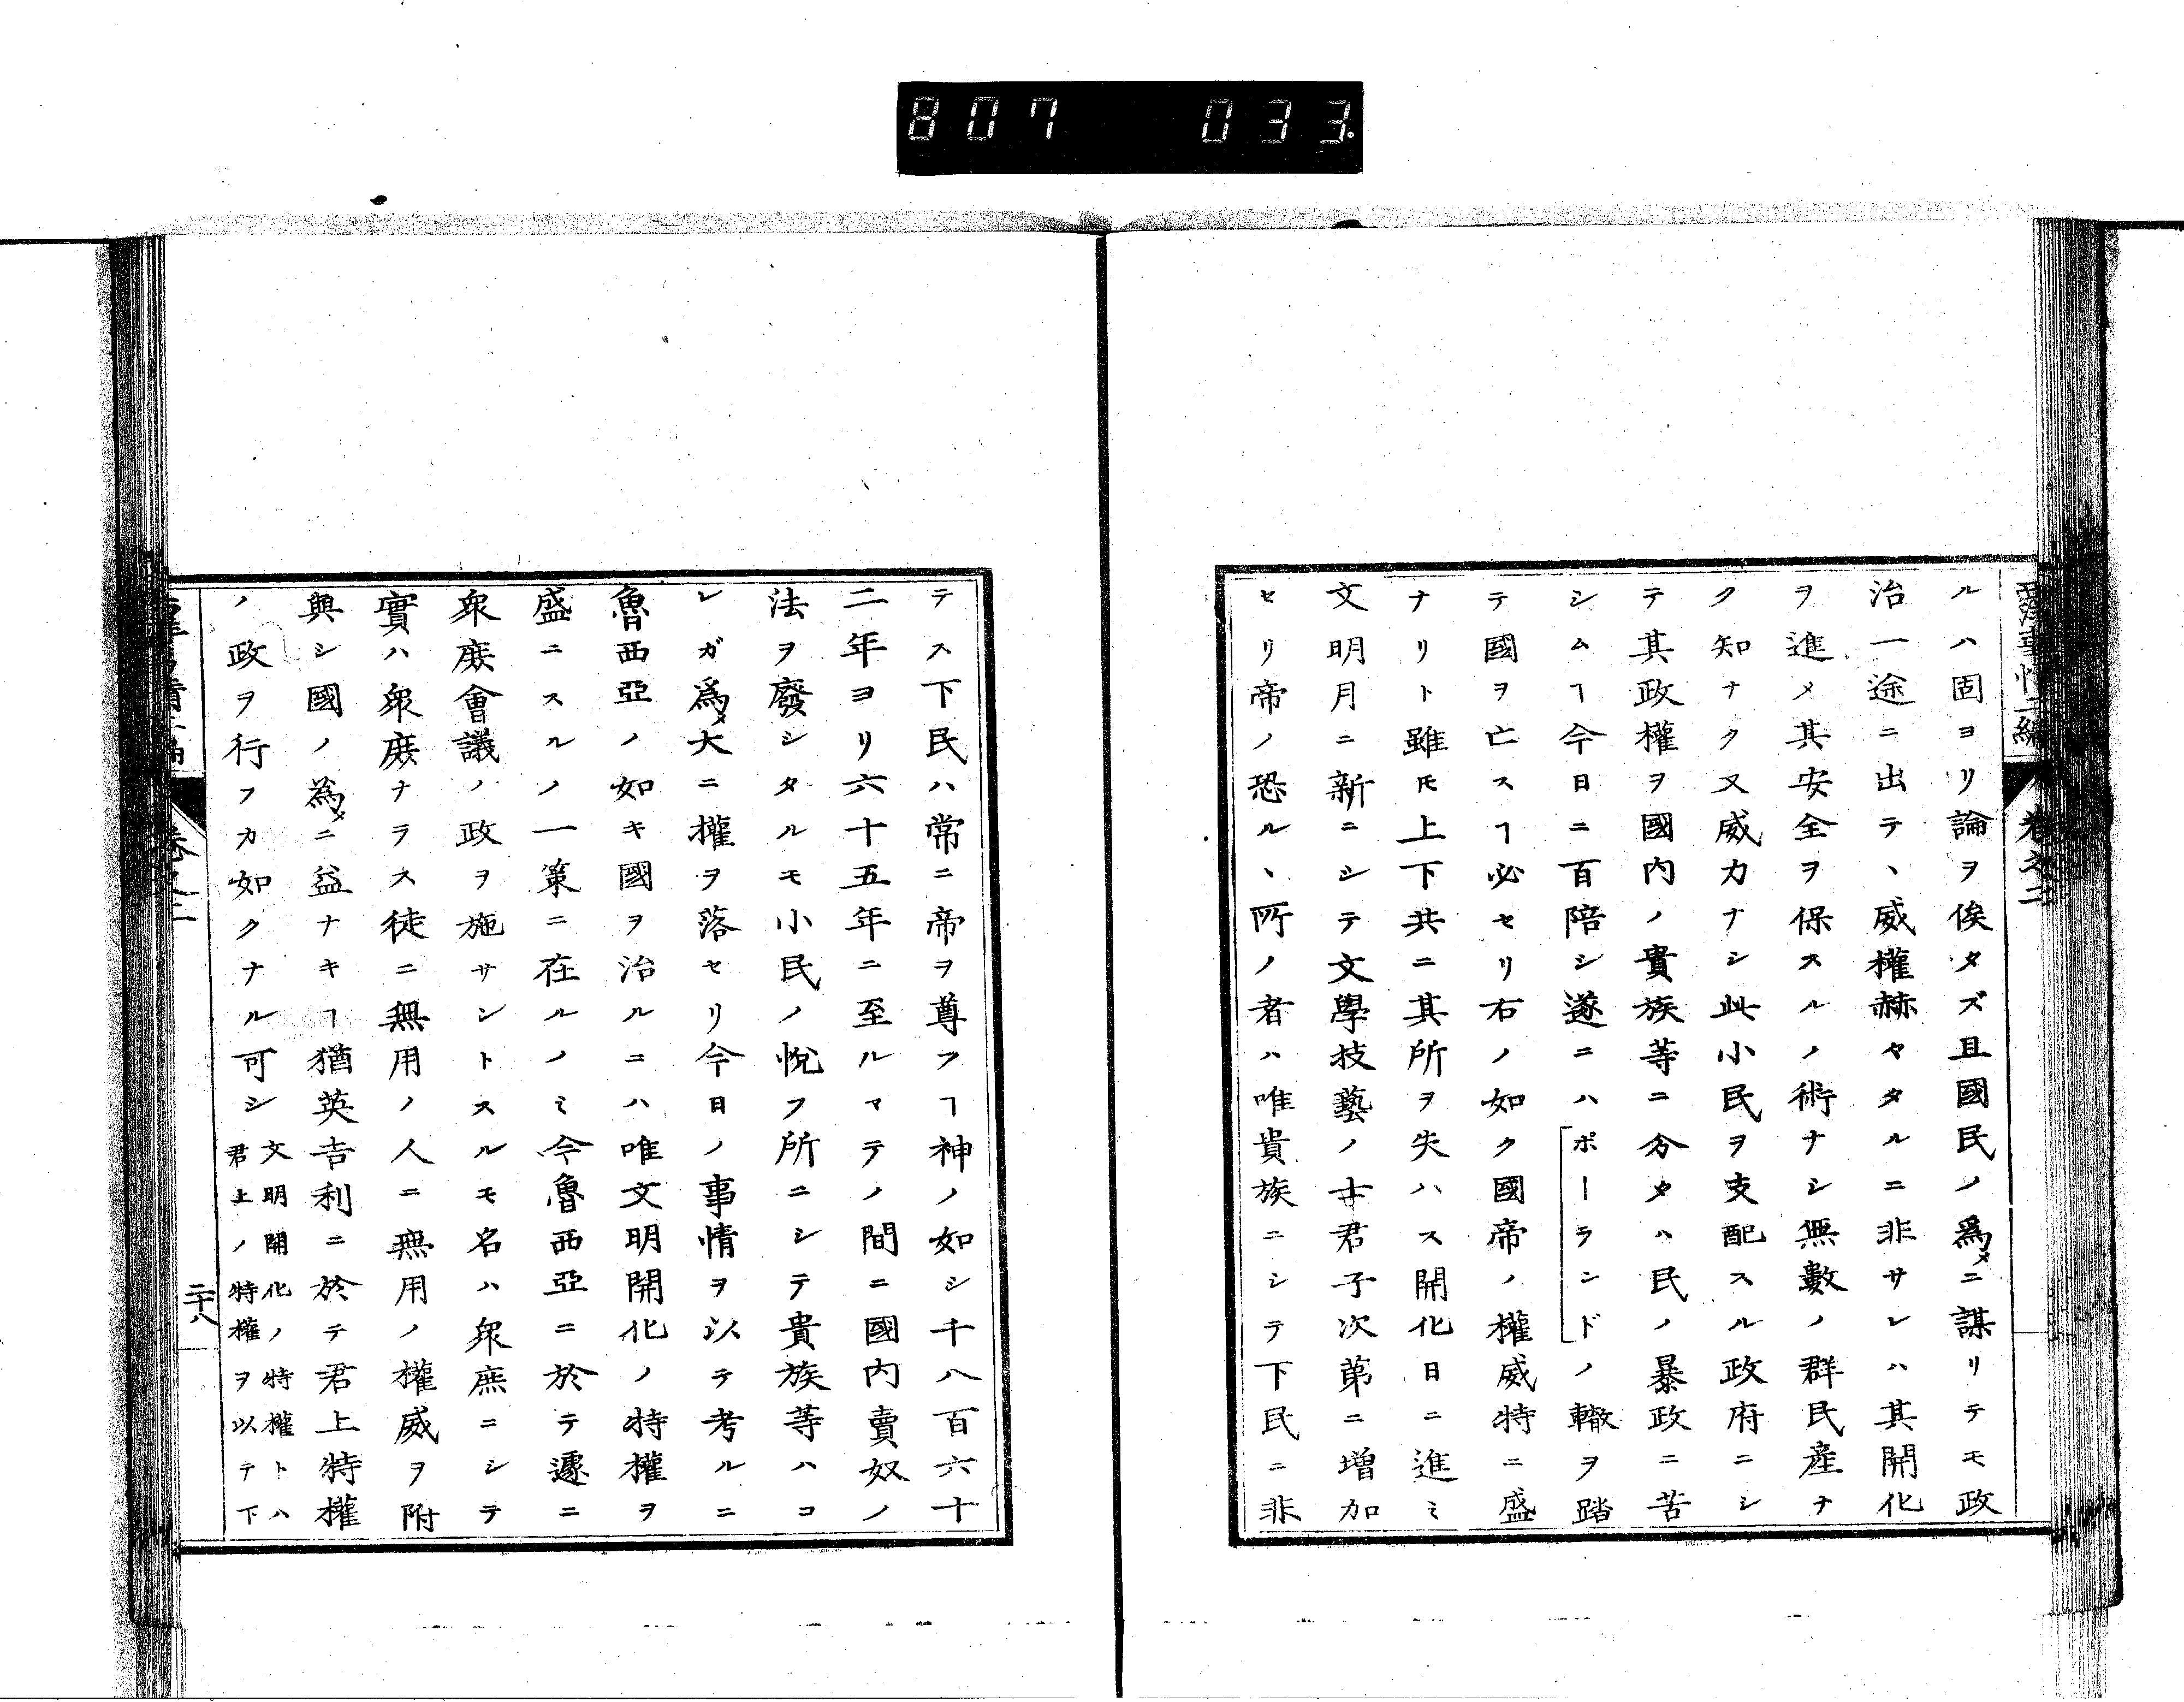 807 033.
西洋事情二編 卷之二
ルハ固ヨリ論ヲ俟タズ且國民ノ爲メニ謀リテモ政
治一途ニ出テヽ威權赫々タルニ非サレハ其開化
ヲ進メ其安全ヲ保スルノ術ナシ無數ノ群民產ナ
ク知ナク又威力ナシ此小民ヲ支配スル政府ニシ
テ其政權ヲ國內ノ貴族等ニ分タハ民ノ暴政ニ苦
シムヿ今日ニ百陪シ遂ニハポーランドノ轍ヲ踏
テ國ヲ亡スヿ必セリ右ノ如ク國帝ノ權威特ニ盛
ナリト雖𪜈上下共ニ其所ヲ失ハス開化日ニ進ミ
文明月ニ新ニシテ文學技藝ノ士君子次第ニ增加
セリ帝ノ恐ルヽ所ノ者ハ唯貴族ニシテ下民ニ非
テス下民ハ常ニ帝ヲ尊フヿ神ノ如シ千八百六十
二年ヨリ六十五年ニ至ルマテノ間ニ國內賣奴ノ
法ヲ廢シタルモ小民ノ悅フ所ニシテ貴族等ハコ
レガ爲メ大ニ權ヲ落セリ今日ノ事情ヲ以テ考ルニ
魯西亞ノ如キ國ヲ治ルニハ唯文明開化ノ特權ヲ
盛ニスルノ一策ニ在ルノミ今魯西亞ニ於テ遽ニ
衆庶會議ノ政ヲ施サントスルモ名ハ衆庶ニシテ
實ハ衆庶ナラス徒ニ無用ノ人ニ無用ノ權威ヲ附
與シ國ノ爲メニ益ナキヿ猶英吉利ニ於テ君上特權
ノ政ヲ行フカ如クナル可シ文明開化ノ特權トハ
君上ノ特權ヲ以テ下
西洋事情二編 卷之二 二十八